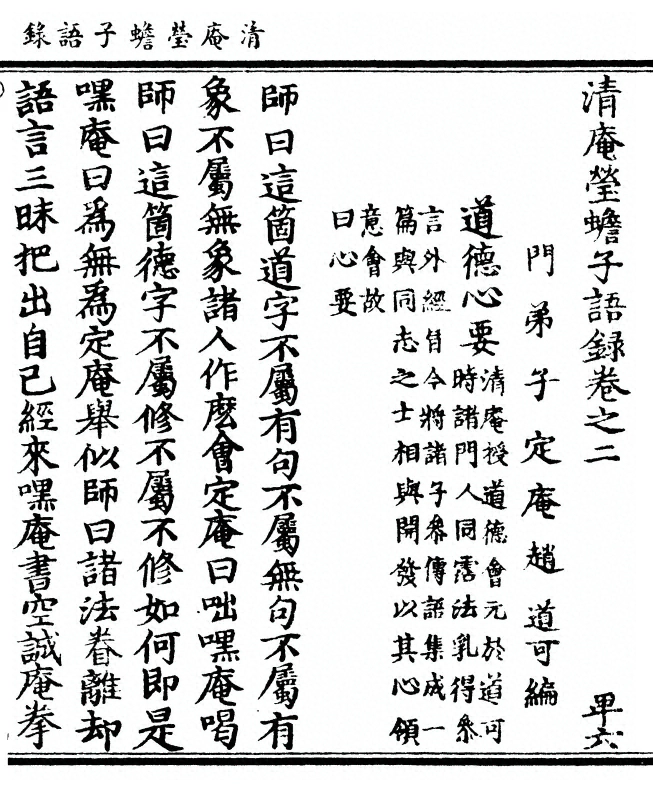 清庵瑩蟾子語錄
清庵瑩蟾子語録卷之二 卑六
門弟子定庵趙道可編
道德心要 清庵授道德會元於道可
時諸門人同霑法乳得叅
言外經旨今將諸子叅傳語集成一
篇與同志之士相與開發以其心領
意會故
曰心要
師曰這箇道字不屬有句不屬無句不屬有
象不屬無象諸人作麽會定庵曰咄嘿庵喝
師曰這箇德字不屬修不屬不修如何即是
嘿庵曰爲無爲定庵舉似師曰諸法眷離却
語言三昧把出自己經來嘿庵書空誠庵拳